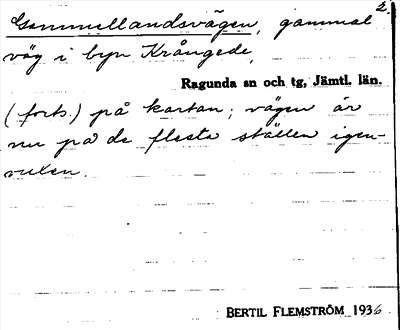 2.
Gammellandsvägen, gammal
väg i byn Krångede,
Ragunda sn och tg, Jämtl. län.
(forts.) på kartan; vägen är
nu på de flesta ställen igen-
vuxen.
BERTIL FLEMSTRÖM 1936